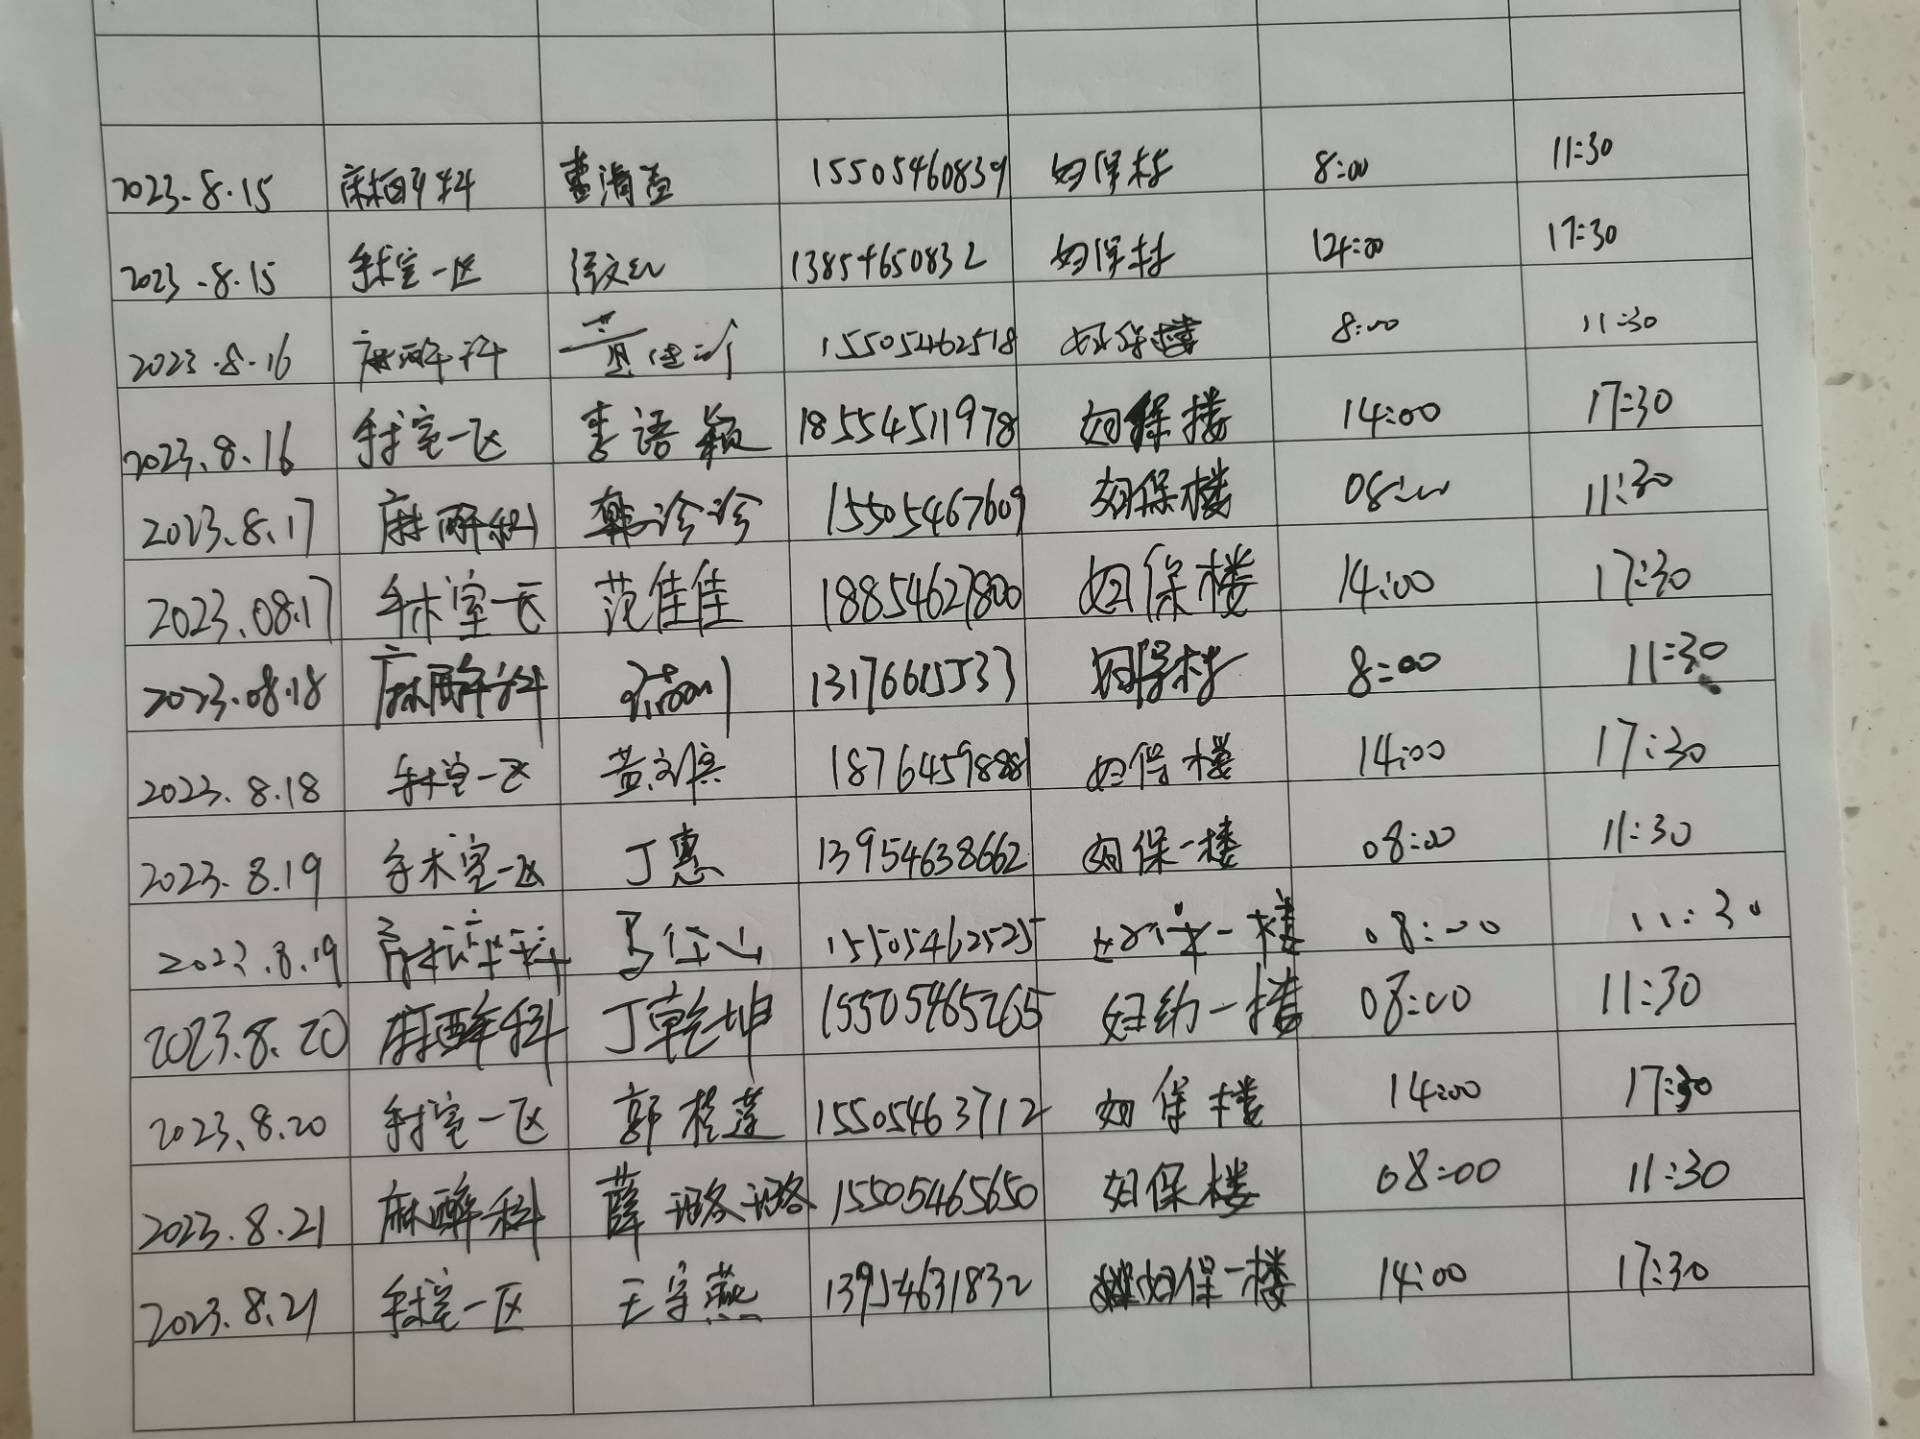 2023.8.15 麻醉科 15505460839 妇保楼 8:00 11:30
2023.8.15 手术室一区 13854650832 妇保楼 14:00 17:30
2023.8.16 麻醉科 15505462518 妇保楼 8:00 11:30
2023.8.16 手术室一区 李语颖 18554511978 妇保楼 14:00 17:30
2023.8.17 麻醉科 韩诊诊 15505467609 妇保楼 08:00 11:30
2023.08.17 手术室一区 范佳佳 18854627800 妇保楼 14:00 17:30
2023.08.18 麻醉科 13176615533 妇保楼 8:00 11:30
2023.8.18 手术室一区 18764459888 妇保楼 14:00 17:30
2023.8.19 手术室一区 丁惠 13954638662 妇保一楼 08:00 11:30
2023.8.19 麻醉科 15505462525 妇保一楼 08:00 11:30
2023.8.20 麻醉科 丁乾坤 15505465265 一楼 08:00 11:30
2023.8.20 手术室一区 郭桂莲 15505463712 妇保楼 14:00 17:30
2023.8.21 麻醉科 薛璐璐 15505465650 妇保楼 08:00 11:30
2023.8.21 手术室一区 王宇燕 13954631832 妇保一楼 14:00 17:30